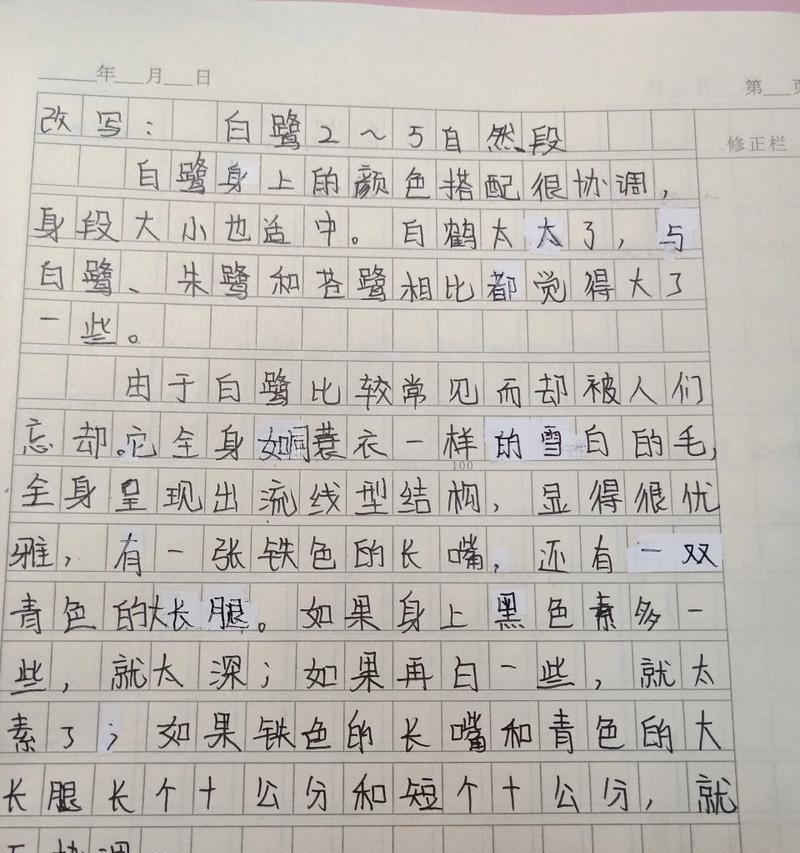 年 月 日
第 页
修正栏
改写： 白鹭2～5自然段
白鹭身上的颜色搭配很协调，
身段大小也适中。白鹤太大了，与
白鹭、朱鹭和苍鹭相比都觉得大了
一些。
由于白鹭比较常见而却被人们
忘却。它全身如同蓑衣一样的雪白的毛，
100
全身呈现出流线型结构，显得很优
雅，有一张铁色的长嘴，还有一双
青色的大长腿。如果身上黑色素多一
些，就太深；如果再白一些，就太
素了；如果铁色的长嘴和青色的大
长腿长个十公分和短个十公分，就
不协调